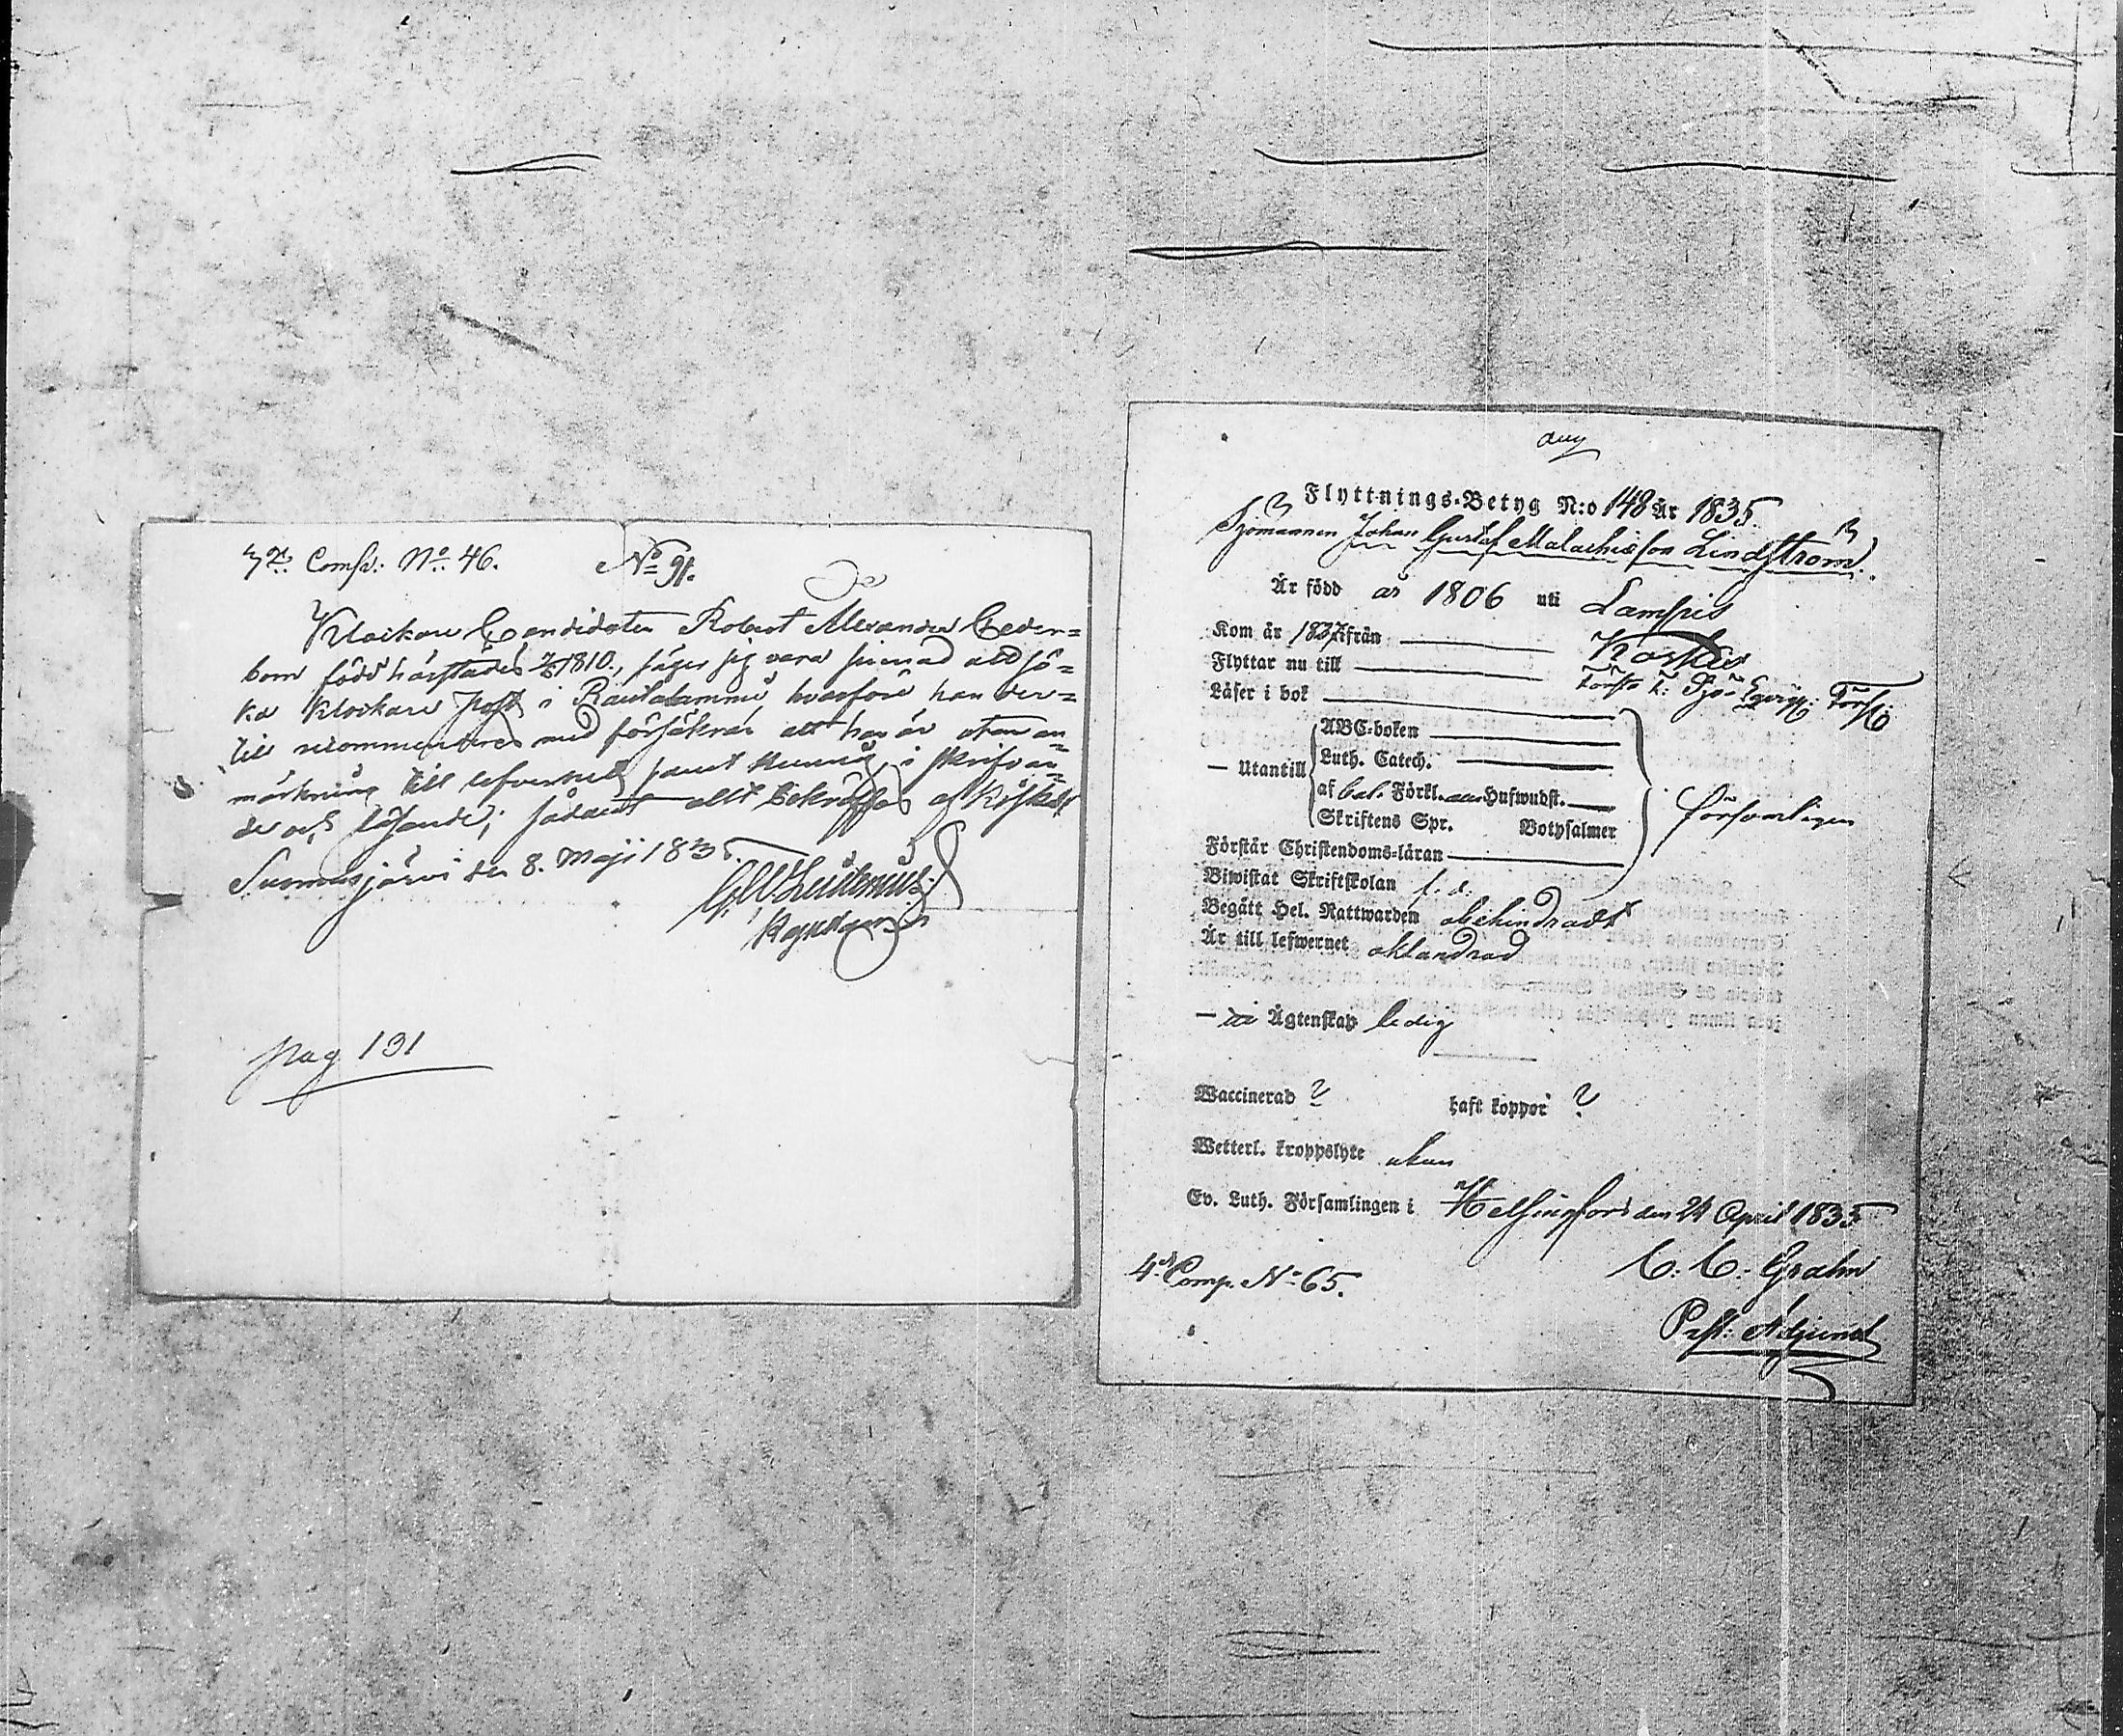 Comp: No. 46. No 91.
Klockare Candidaten Robert Alexander Ceder=
bom född härstädes 1810., säger sig vara sinnad att sö=
ka Klockare Post i Rautalammi, hvarföre han der=
till recommenderas med försäkran att han är utan an=
märkning till lefvernet samt kunnig i skrifvan=
de och läsande; sådant allt bekräftas af Kiskå och
Suomusjärvi den 8. Maji 1835.
pag 131
aug
Flyttnings-Betyg N:o 148 År 1835.
Sjömannen Johan Gustaf Malachiæson Lindström.
Är född år 1806 uti Lampis
Kom år 183 ifrån Koskis
Flyttar nu till Första F: Sjö-Equip:
Läser i bok
— Utantill
ABC-boken
Luth. Catech.
af Förkl. Hufwudst.
Skriftens Spr. Botpsalmer
församlingen
Förstår Christendoms-läran
Biwistat Skriftskolan f. d.
Begått Hel. Nattwarden obehindradt
Är till lefwernet oklandrad
— Ägtenskap ledig
Waccinerad ? haft koppor ?
Wetterl. kroppslyte utan
Ev. Luth. Församlingen i Helsingfors den 24 April 1835
C: C: Grahn
4de Comp. No 65.
Past: Adjunct